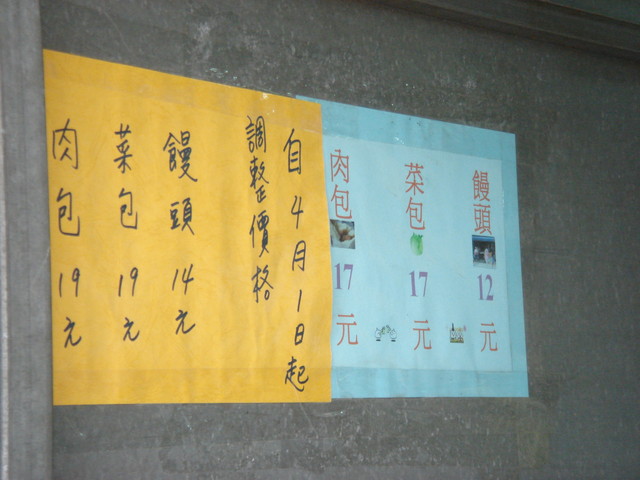 自4月1日起
調整價格
饅頭14元
菜包19元
肉包19元
饅頭12元
菜包17元
肉包17元